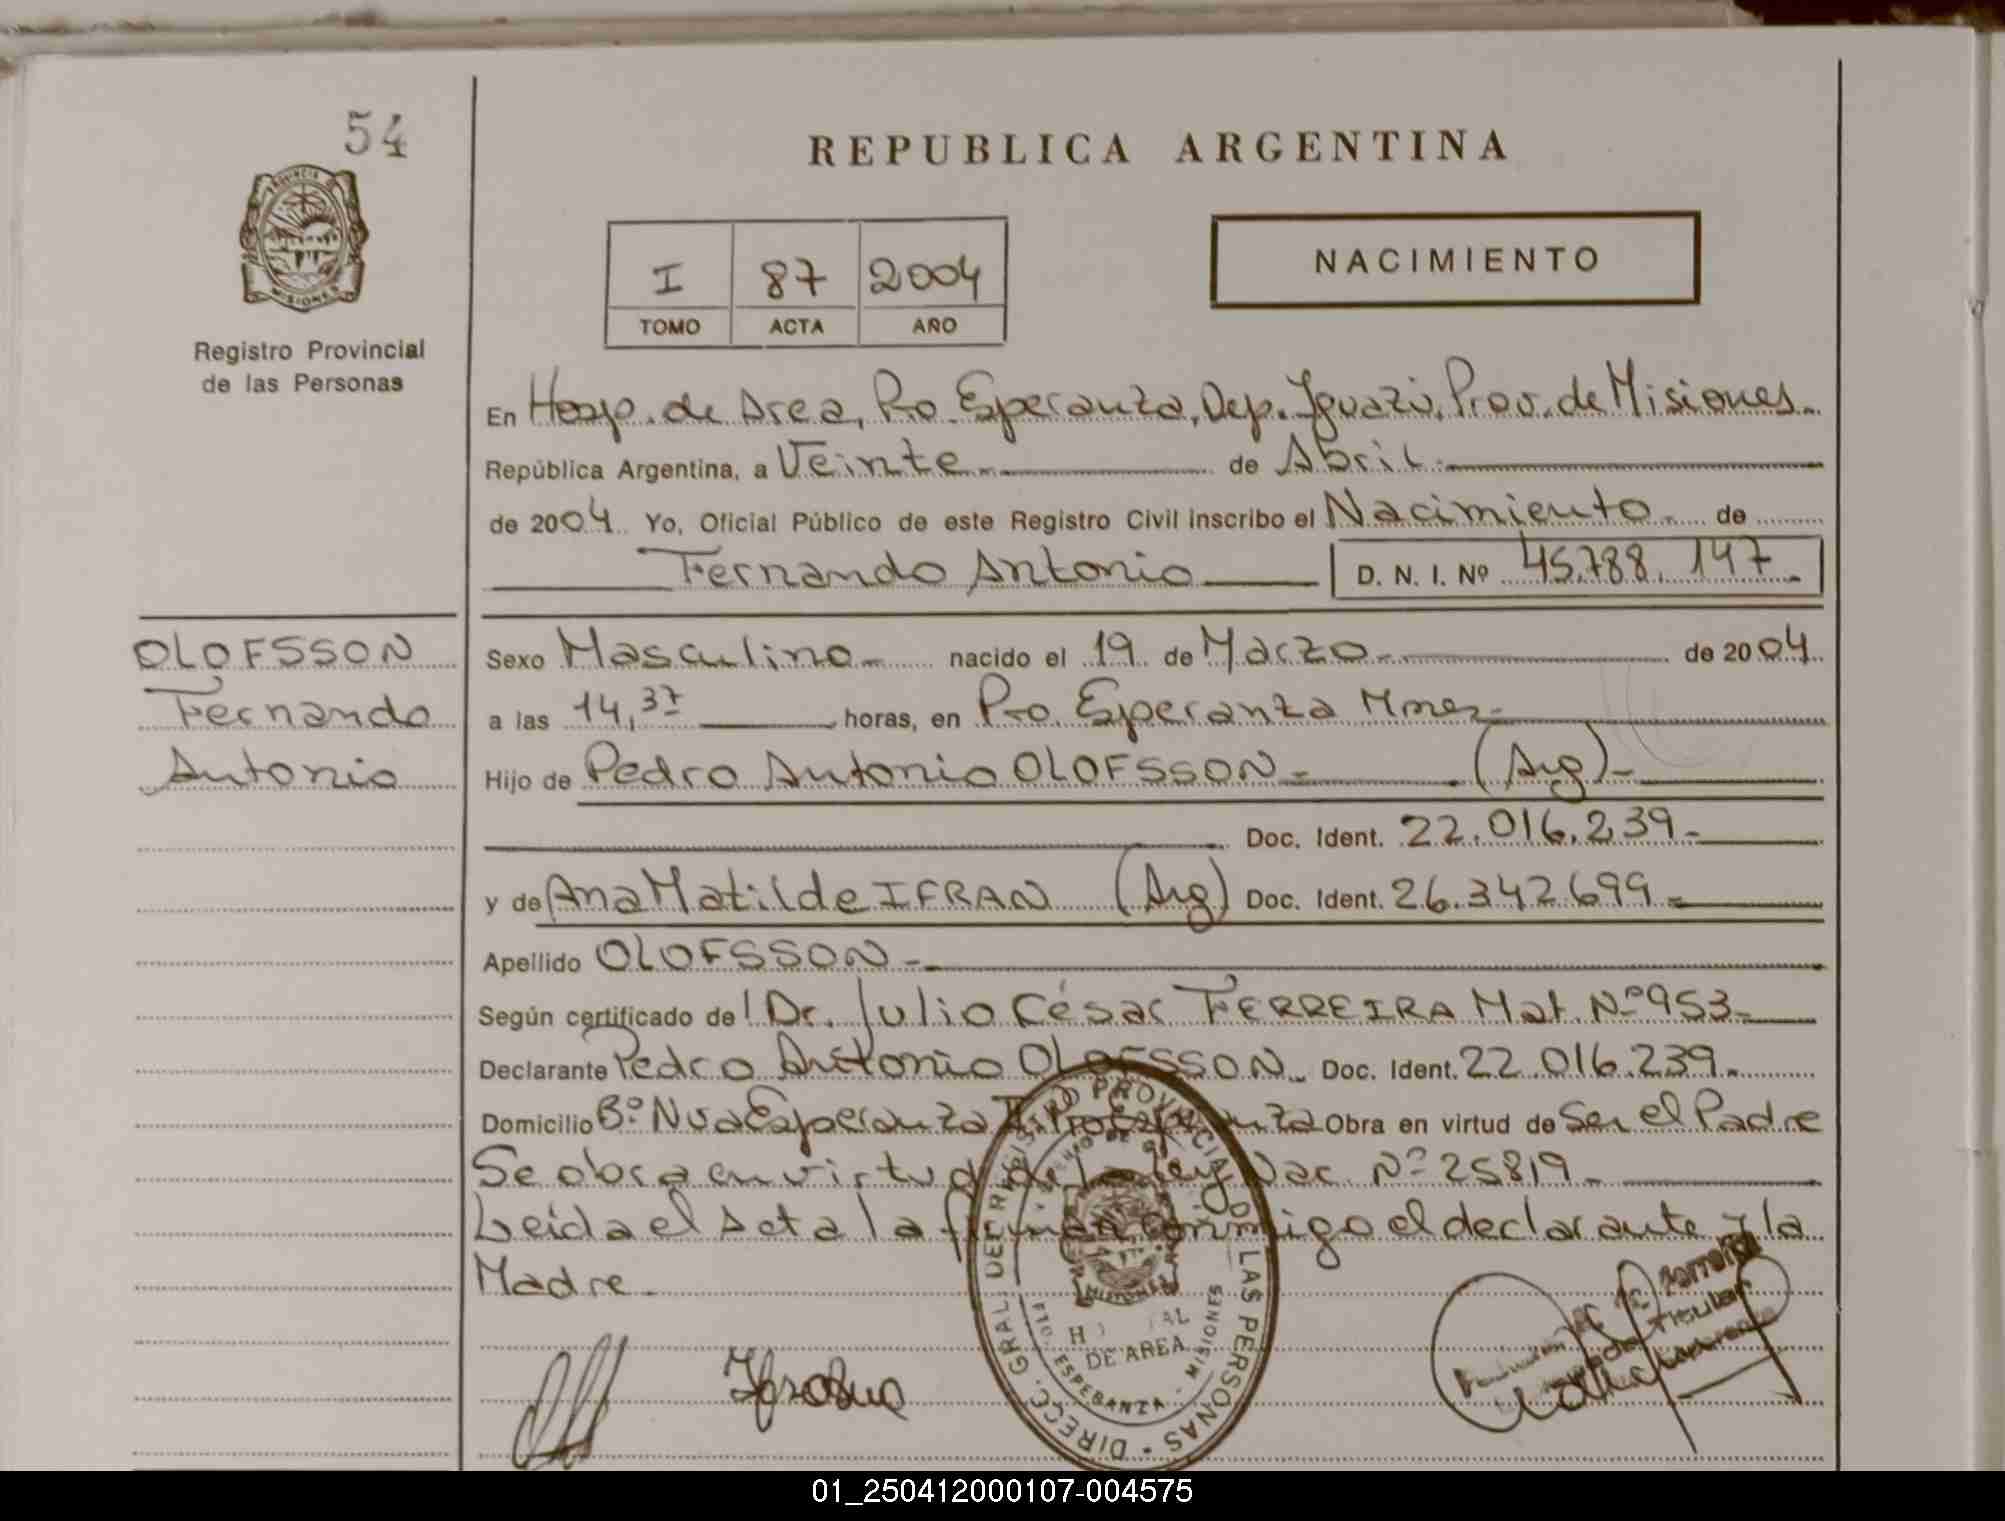 54
REPUBLICA ARGENTINA
PROVINCIA
MISIONES
Registro Provincial
de las Personas
I 87 2004
TOMO ACTA AÑO
NACIMIENTO
En Hosp. de Area, Pto. Esperanza, Dep. Iguazú, Prov. de Misiones.
República Argentina, a Veinte.- de Abril.-
de 2004. Yo, Oficial Público de este Registro Civil inscribo el Nacimiento.- de
Fernando Antonio D. N. I. Nº 45.788.147.-
OLOFSSON
Fernando
Antonio
Sexo Masculino.- nacido el 19 de Marzo.- de 2004.
a las 14,37 horas, en Pto. Esperanza Mnes.-
Hijo de Pedro Antonio OLOFSSON.- (Arg)-
Doc. Ident. 22.016.239.-
y de Ana Matilde IFRAN (Arg) Doc. Ident. 26.342.699.-
Apellido OLOFSSON.-
Según certificado de Dr. Julio César FERREIRA Mat. Nº 953.-
Declarante Pedro Antonio OLOFSSON.- Doc. Ident. 22.016.239.-
Domicilio Bº. Nva Esperanza II. Pto Esperanza Obra en virtud de Ser el Padre
Se obra en virtud de la Ley Nac. Nº 25819.-
Leída el Acta la firman conmigo el declarante y la
Madre.-
DIRECC. GRAL. DEL REGISTRO PROVINCIAL DE LAS PERSONAS
MISIONES
DE AREA
PTO. ESPERANZA - MISIONES
01_250412000107-004575